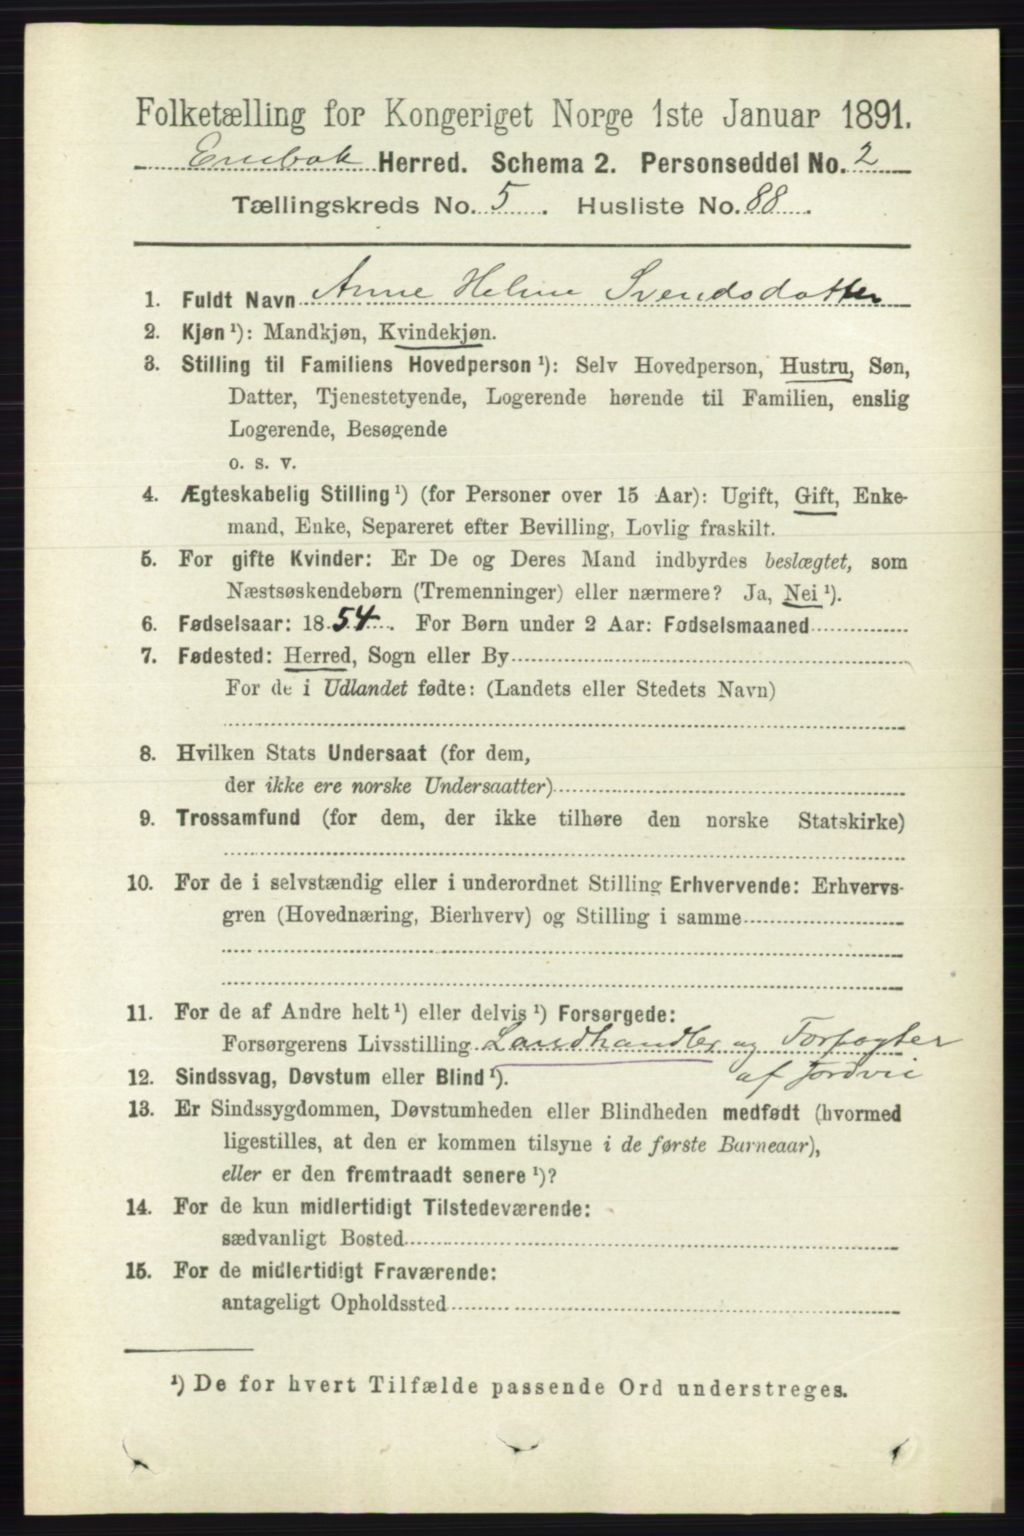 Folketælling for Kongeriget Norge 1ste Januar 1891.
Enebak Herred. Schema 2. Personseddel No. 2
Tællingskreds No. 5. Husliste No. 88.
1. Fuldt Navn Anne Helene Svendsdatter
2. Kjøn ¹): Mandkjøn, Kvindekjøn.
3. Stilling til Familiens Hovedperson ¹): Selv Hovedperson, Hustru, Søn,
Datter, Tjenestetyende, Logerende hørende til Familien, enslig
Logerende, Besøgende
o. s. v.
4. Ægteskabelig Stilling ¹) (for Personer over 15 Aar): Ugift, Gift, Enke-
mand, Enke, Separeret efter Bevilling, Lovlig fraskilt.
5. For gifte Kvinder: Er De og Deres Mand indbyrdes beslægtet, som
Næstsøskendebørn (Tremenninger) eller nærmere? Ja, Nei ¹).
6. Fødselsaar: 1854. For Børn under 2 Aar: Fødselsmaaned
7. Fødested: Herred, Sogn eller By
For de i Udlandet fødte: (Landets eller Stedets Navn)
8. Hvilken Stats Undersaat (for dem,
der ikke ere norske Undersaatter)
9. Trossamfund (for dem, der ikke tilhøre den norske Statskirke)
10. For de i selvstændig eller i underordnet Stilling Erhvervende: Erhvervs-
gren (Hovednæring, Bierhverv) og Stilling i samme
11. For de af Andre helt ¹) eller delvis ¹) Forsørgede:
Forsørgerens Livsstilling Landhandler og Forpagter
af Jordvei
12. Sindssvag, Døvstum eller Blind ¹).
13. Er Sindssygdommen, Døvstumheden eller Blindheden medfødt (hvormed
ligestilles, at den er kommen tilsyne i de første Barneaar),
eller er den fremtraadt senere ¹)?
14. For de kun midlertidigt Tilstedeværende:
sædvanligt Bosted
15. For de midlertidigt Fraværende:
antageligt Opholdssted
¹) De for hvert Tilfælde passende Ord understreges.